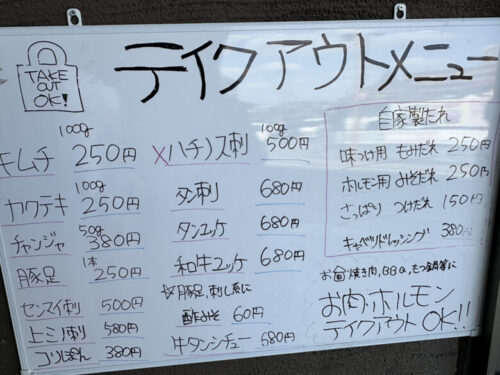 TAKE
OUT
OK!
テイクアウトメニュー
100g
キムチ 250円
100g
カクテキ 250円
50g
チャンジャ 380円
1本
豚足 250円
センマイ刺 500円
上ミノ刺 580円
コリぽん 380円
100g
×ハチノス刺 500円
タン刺 680円
タンユッケ 680円
和牛ユッケ 680円
☆豚足、刺し系に
酢みそ 60円
牛タンシチュー 680円
自家製たれ
味つけ用 もみだれ 250円
ホルモン用 みそだれ 250円
さっぱり つけだれ 150円
キャベツドレッシング 380円
お家焼き肉、BBQ、もつ鍋等に
お肉・ホルモン
テイクアウトOK!!